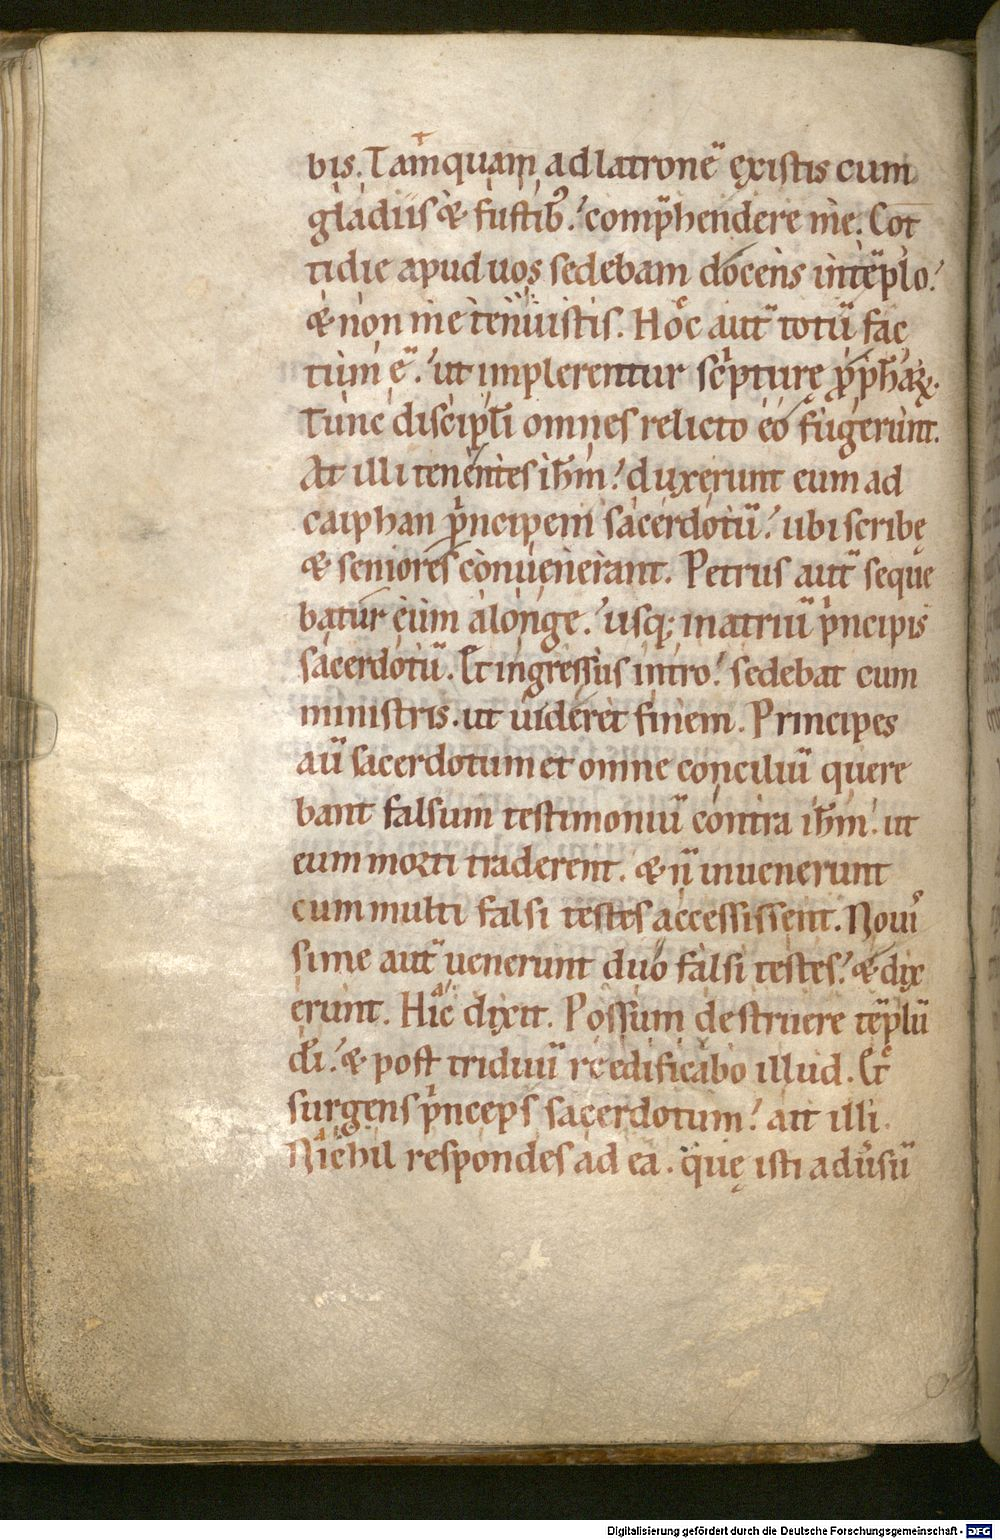 bis. Tamquam ad latronē existis cum
gladiis & fustib; comp̄hendere me. Cot
tidie apud uos sedebam docens in tēplo.
& non me tenuistis. Hoc aut̄ totū fac
tum ē. ut implerentur sc̄pturę ꝓph̄aꝝ.
Tunc discipl̄i omnes relicto eo fugerunt.
At illi tenentes ih̄m. duxerunt eum ad
caiphan p̍ncipem sacerdotū. ubi scribę
& seniores conuenerant. Petrus aut̄ seque
batur eum a longe. usq; in atriū p̍ncipis
sacerdotū. Et ingressus intro. sedebat cum
ministris. ut uideret finem. Principes
aū sacerdotum et omne conciliū quere
bant falsum testimoniū contra ih̄m. ut
eum morti traderent. & n̄ inuenerunt
cum multi falsi testes accessissent. Noui
sime aut̄ uenerunt duo falsi testes. & dix
erunt. Hic dixit. Possum destruere tēplū
dī. & post triduū reedificabo illud. Et
surgens p̍nceps sacerdotum. ait illi.
Nichil respondes ad ea. quę isti adūsū
Digitalisierung gefördert durch die Deutsche Forschungsgemeinschaft - DFG